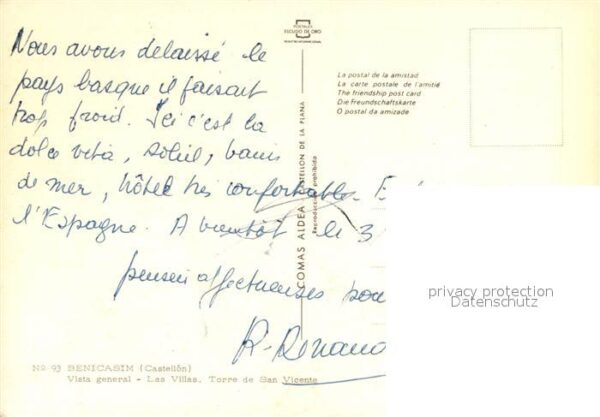 POSTALES
ESCUDO DE ORO
Nous avons delaissé le
pays basque il faisait
trop froid. Ici c'est la
dolce vita, soleil, bains
de mer, hôtel très confortable. E
l'Espagne. A bientôt le 3
pensées affectueuses pour
R. Renaud
La postal de la amistad
La carte postale de l'amitié
The friendship post card
Die Freundschaftskarte
O postal da amizade
COMAS ALDEA CASTELLON DE LA PLANA
Reproducción prohibida
privacy protection
Datenschutz
No 93 BENICASIM (Castellón)
Vista general - Las Villas. Torre de San Vicente